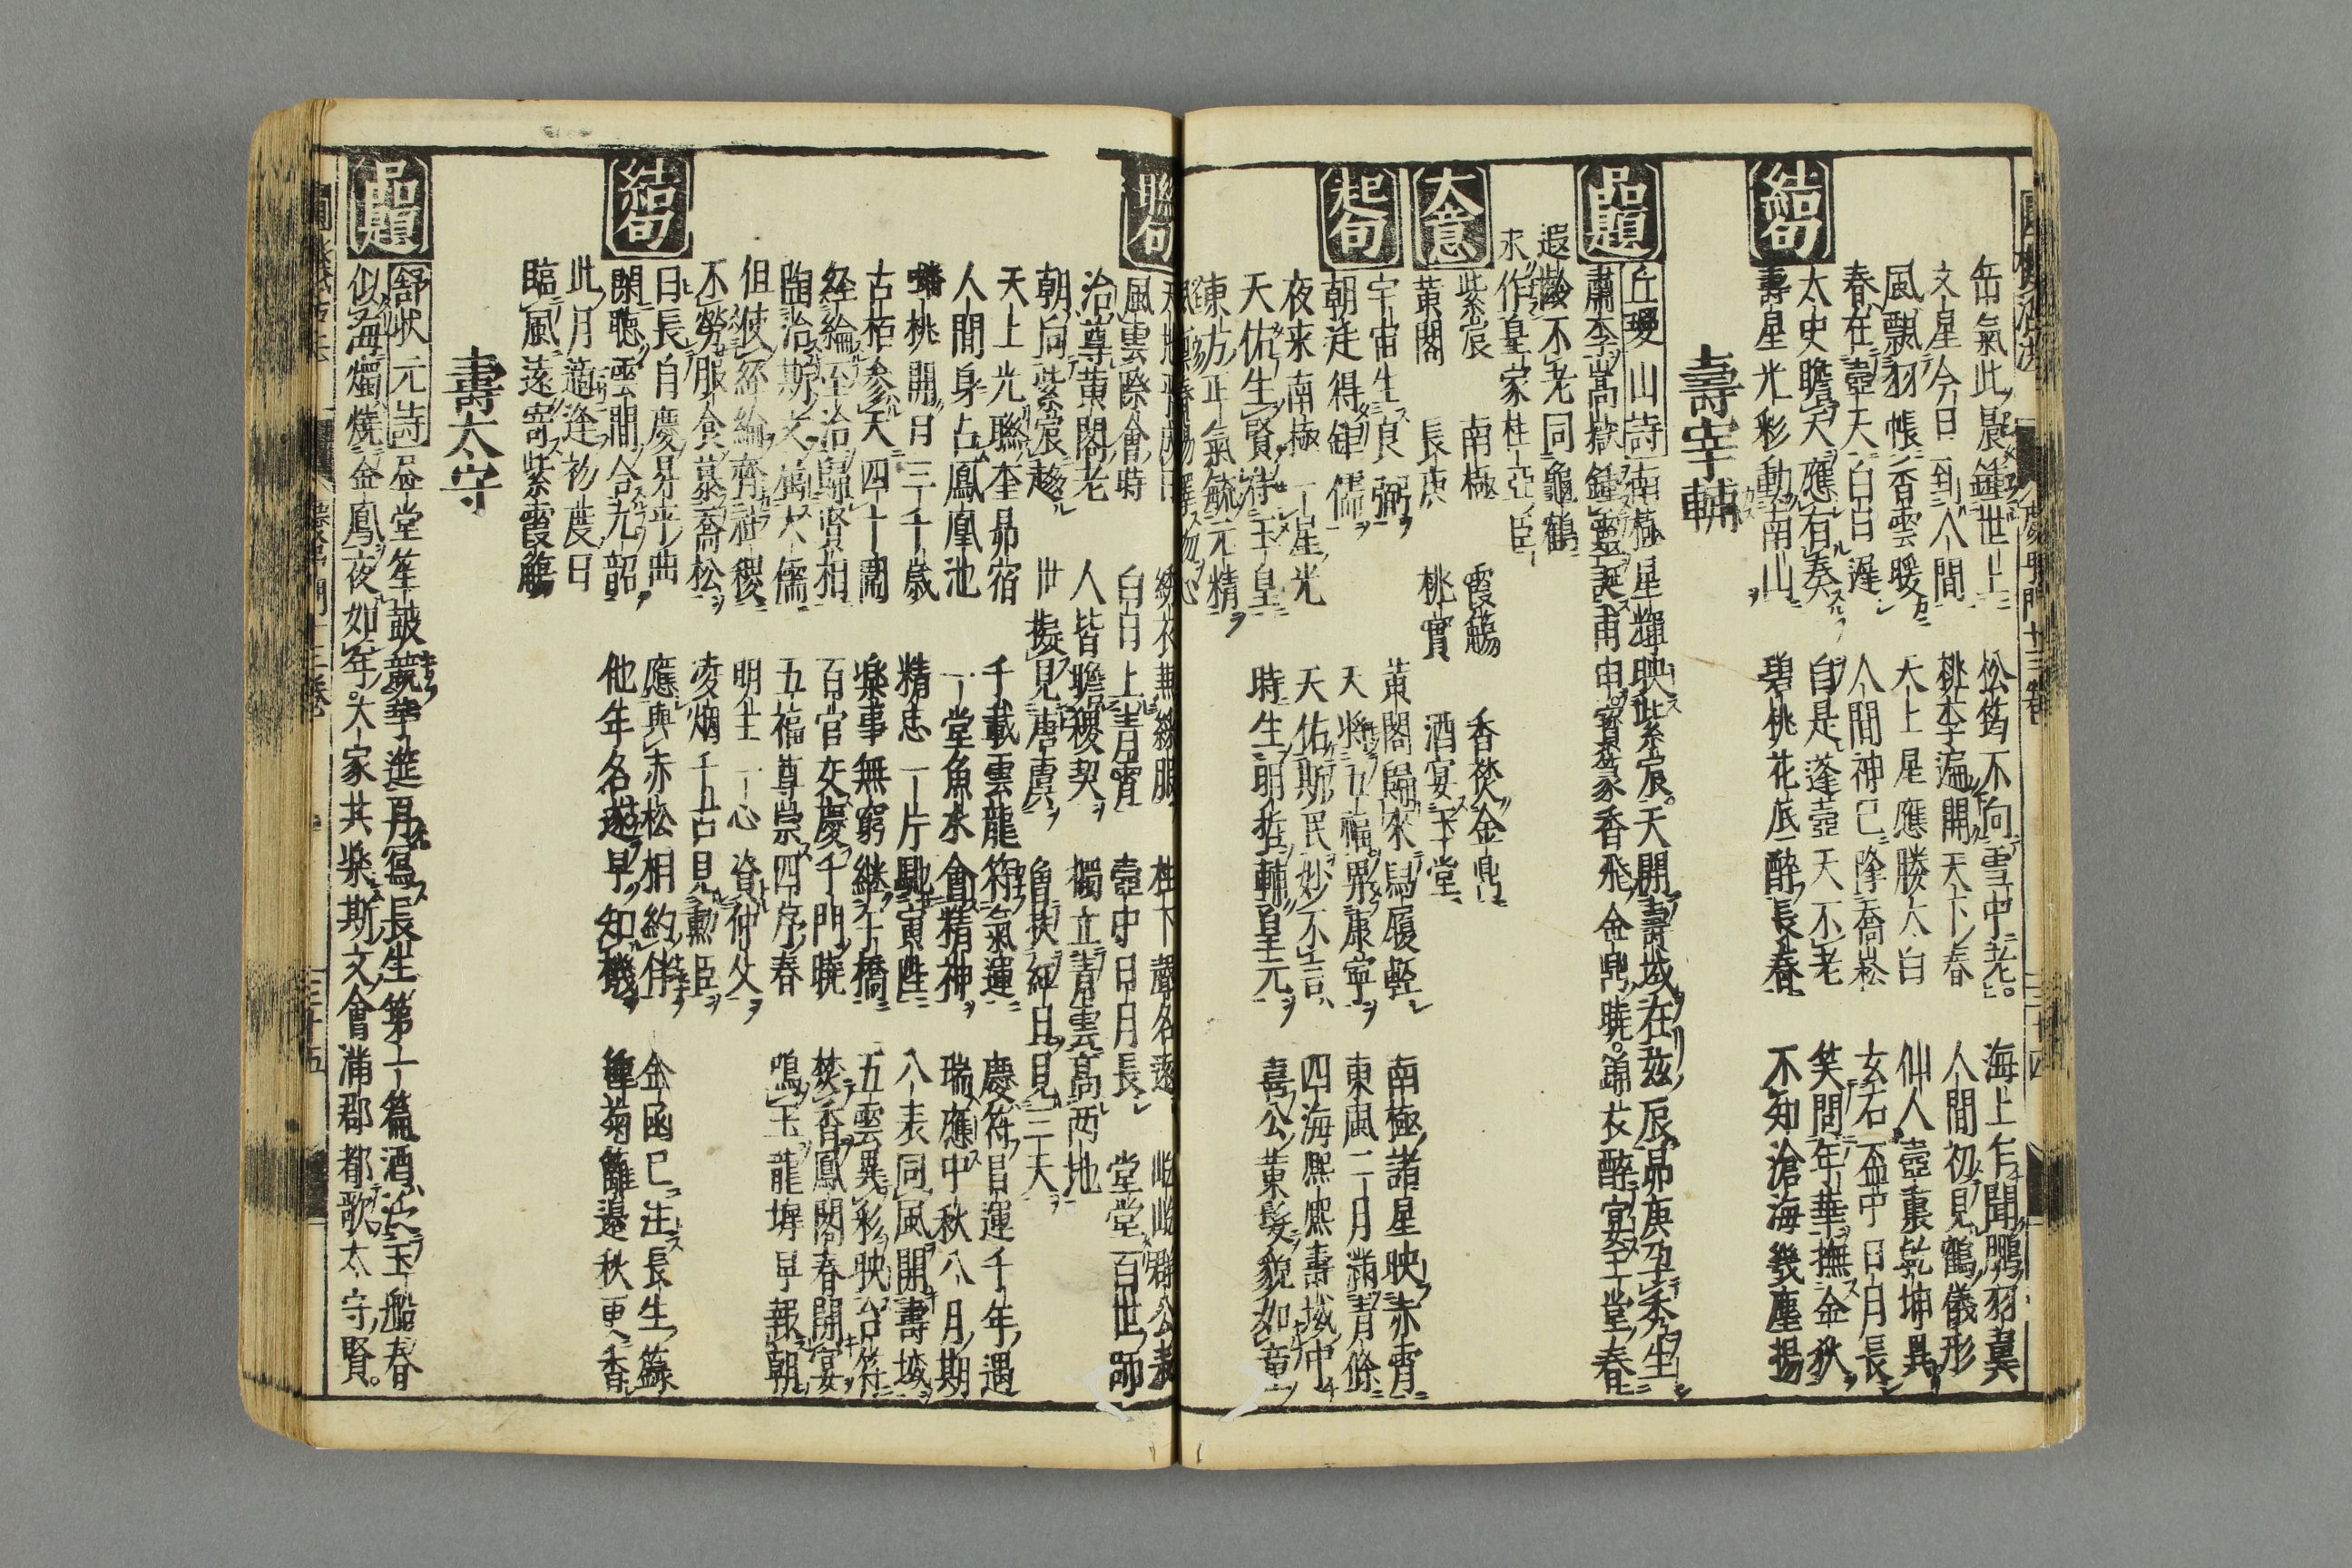 缶氣此晨鍾世上　松筠不向雪中老　海上乍聞鵬羽翼
文星今日到人間　桃李遍開天下春　人間初見鶴儀形
風飄羽帳香雲暖　天上星應勝太白　仙人壺裏乾坤異
春在壺天白日遲　人間神已降喬崧　玄石盃中日月長
太史瞻天應有奏　自是蓬壺天不老　笑問年華撫金狄
結句
壽星光彩動南山　碧桃花底醉長春　不知滄海幾塵揚
壽宰輔
品題
丘瓊山詩　南極星輝映紫宸天開壽域在茲辰昴庚孕秀生
蕭李嵩嶽鍾靈誕甫申寶篆香飛金鼎曉錦衣醉宴玉堂春
遐齡不老同龜鶴
永作皇家柱石臣
大意
紫宸　南極　霞觴　香焚金鼎
黃閣　長庚　桃實　酒宴玉堂
起句
宇宙生良弼　黃閣歸來舄履輕　南極諸星映赤霄
朝廷得鉅儒　天將五福畀康寧　東風二月滿青條
夜來南極一星光　天佑斯民妙不言　四海熙熙壽域中
天佑生賢待玉皇　時生明哲輔皇元　喜公黃髮貌如童
東方正氣毓元精
聯句
風雲際會時　白日上青霄　壺中日月長　堂堂百世師
治尊黃閣老　人皆瞻稷契　獨立青雲高兩地
朝向紫宸趨　世擬見唐虞　魯扶紅日見三天
天上光聯奎昴宿　千載雲龍符氣運　慶符昌運千年遇
人間身占鳳凰池　一堂魚水會精神　瑞應中秋八月期
蟠桃開日三千歲　精忠一片馳寅陛　八表同風開壽域
古栢參天四十圍　樂事無窮繼午橋　五雲異彩映台符
經綸至治歸賢相　百官交慶千門曉　焚香鳳閣春開宴
陶冶斯文屬大儒　五福尊崇四序春　鳴玉龍墀早報朝
但使經綸齊社稷　明主一心資仲父
不勞服食慕喬松　凌烟千古見勳臣
日長自慶昇平曲　應與赤松相約伴　金函已注長生籙
結句
閑聽雲間合九韶　他年名遂早知機　種菊籬邊秋更香
此月適逢初度日
臨風遙寄紫霞觴
壽太守
品題
舒狀元詩　昼堂笙鼓競華進再寫長生第一篇酒泛玉船春
似海燭燒金鳳夜如年大家共樂斯文會滿郡都歌太守賢